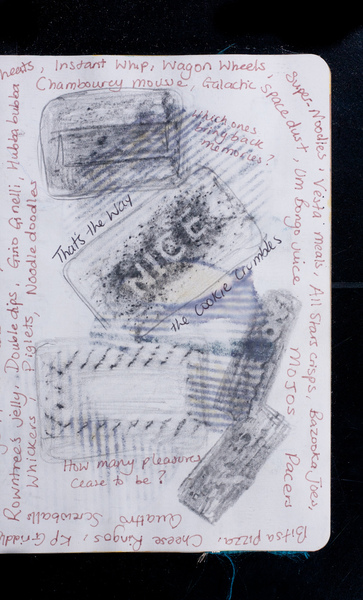 heats, Instant Whip, Wagon Wheels,
Chambourcy mousse, Galactic
Space dust, Um Bongo Juice
MoJos
Pacers
Super Noodles, Vesta meals, All Stars crisps, Bazooka Joes,
Which ones
bring back
memories?
That's the way
NICE
the cookie crumbles
How many pleasures
cease to be?
Quatro
Screwballs
Bitsa pizza, Cheese Ringos, KP Griddl
Rowntrees Jelly, Double dips, Gino Ginelli, Hubba bubba
Whickers, Piglets, Noodle doodles